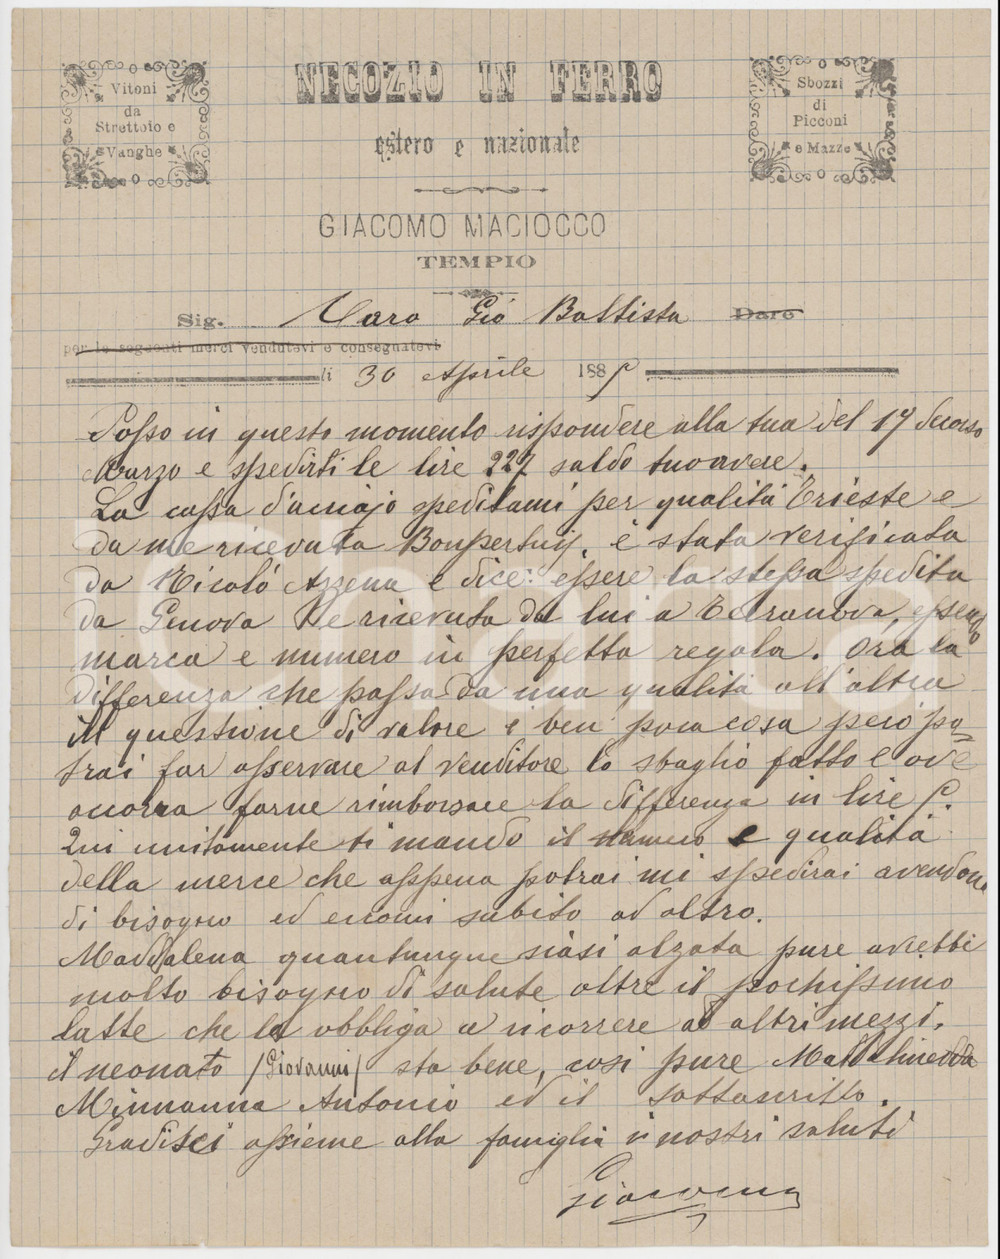 Vitoni
da
Strettoio e
Vanghe
NEGOZIO IN FERRO
estero e nazionale
Sbozzi
di
Picconi
e Mazze
GIACOMO MACIOCCO
TEMPIO
Sig. Caro Gio Battista Dare
per le seguenti merci vendutevi e consegnatevi
li 30 Aprile 188
Posso in questo momento rispondere alla tua del 17 decorso
Marzo e spedirti le lire 227 saldo tuo avere.
La cassa d'acciajo speditami per qualità Trieste e
da me ricevuta è stata verificata
da Nicolò Azzena e dice: essere la stessa spedita
da Genova e ricevuta da lui a Terranova, essendo
marca e numero in perfetta regola. Ora la
differenza che passa da una qualità all'altra
in questione di valore è ben poca cosa però po=
trai far osservare al venditore lo sbaglio fatto e ove
occorra farne rimborsare la differenza in lire
Qui unitamente ti mando il numero e qualità
della merce che appena potrai mi spedirai avendone
di bisogno ed eccomi subito ad altro.
Maddalena quantunque siasi alzata pure avrebbi
molto bisogno di salute oltre il pochissimo
latte che la obbliga a ricorrere ad altri mezzi.
il neonato /Giovanni/ sta bene, così pure
Minnanna Antonio ed il sottoscritto.
Gradisci assieme alla famiglia i nostri saluti
Giacomo
Charta